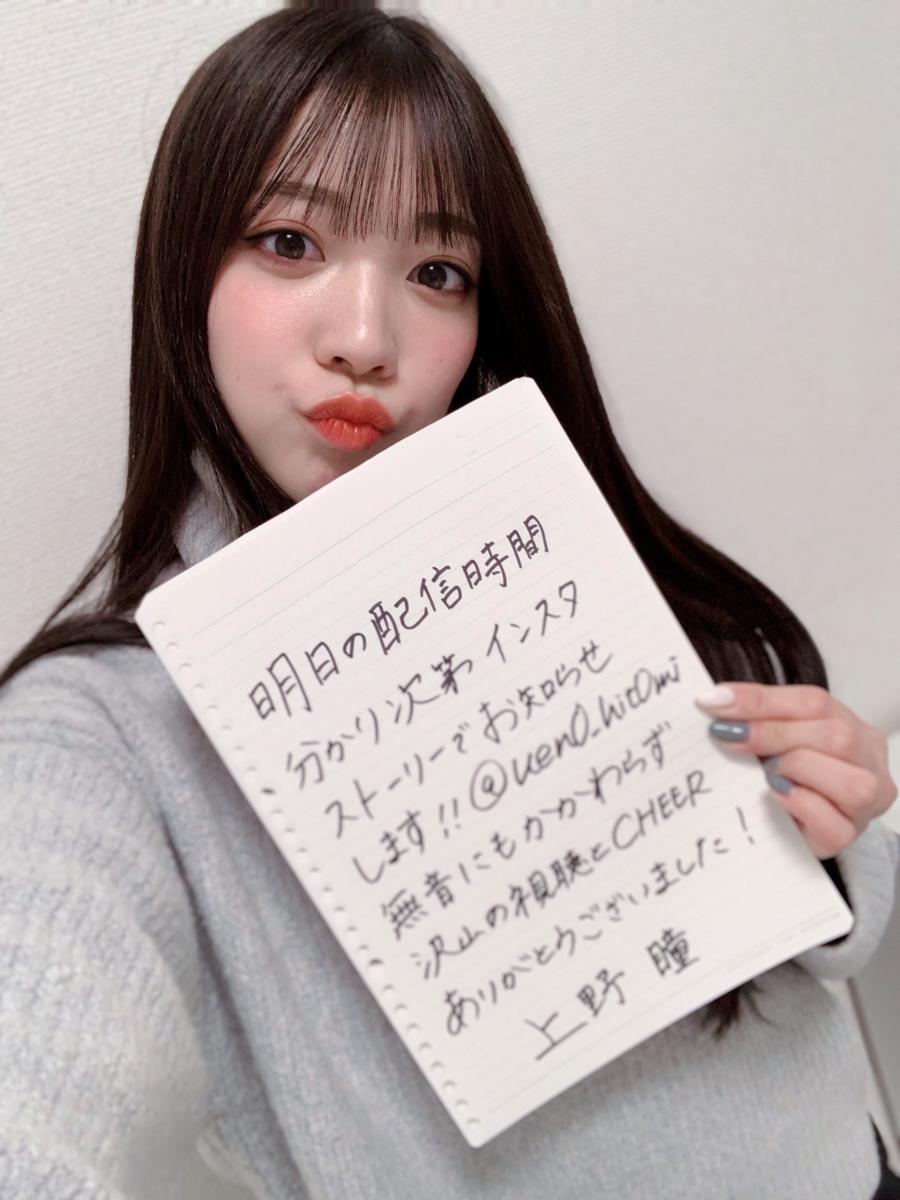 明日の配信時間
分かり次第 インスタ
ストーリーでお知らせ
します!! @uen0_hit0mi
無音にもかかわらず
沢山の視聴とCHEER
ありがとうございました!
上野 瞳